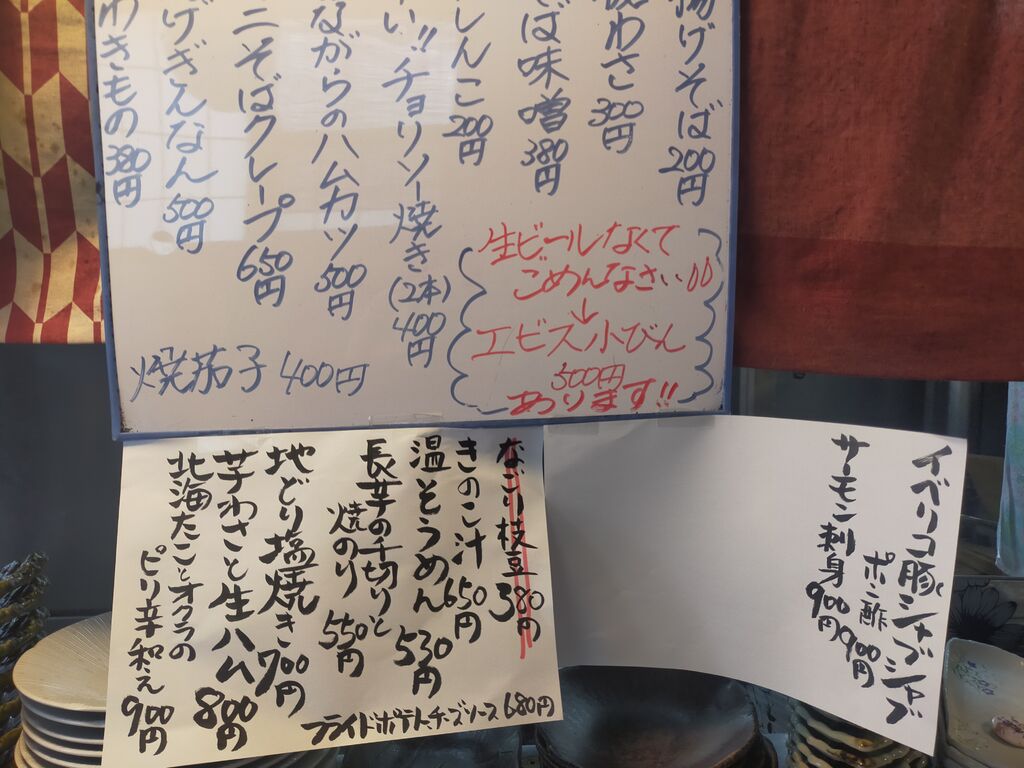 揚げそば 200円
わさ 300円
そば味噌 380円
しんこ 200円
い!!チョリソー焼き(2本) 400円
ながらのハムカツ 500円
ニそばクレープ 650円
げぎんなん 500円
わきもの 380円
焼茄子 400円
生ビールなくて
ごめんなさい
↓
エビス小びん
500円
あります!!
イベリコ豚シャブシャブ
ポン酢 900円
サーモン刺身 900円
なごり枝豆 380円
きのこ汁 650円
温そうめん 530円
長芋の千切りと
焼のり 550円
地どり塩焼き 700円
芋わさと生ハム 800円
北海たことオクラの
ピリ辛和え 900円
フライドポテトチーズソース 680円